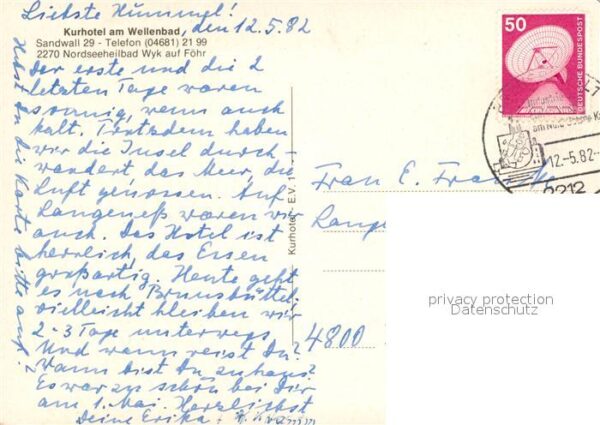 Liebste Hummel!
Kurhotel am Wellenbad, den 12.5.82
Sandwall 29 - Telefon (04681) 21 99
2270 Nordseeheilbad Wyk auf Föhr
Der erste und die 2
letzten Tage waren
sonnig, wenn auch
kalt. Trotzdem haben
wir die Insel durch
wandert das Meer, die
Luft genossen. Auf
Langeneß waren wir
auch. Das Hotel ist
herrlich, das Essen
großartig. Heute geht
es nach Brunsbüttel,
vielleicht bleiben wir
2-3 Tage unterwegs
Und wann reist Du?
Wann bist Du zuhaus?
Es war zu schön bei Dir
am 1. Mai. Herzlichst
Deine Erika +
Hebst Du die Karte bitte auf?
Kurhotel E.V.
50
DEUTSCHE BUNDESPOST
12.-5.82-
2212
Frau E.
Lange
4800
privacy protection
Datenschutz